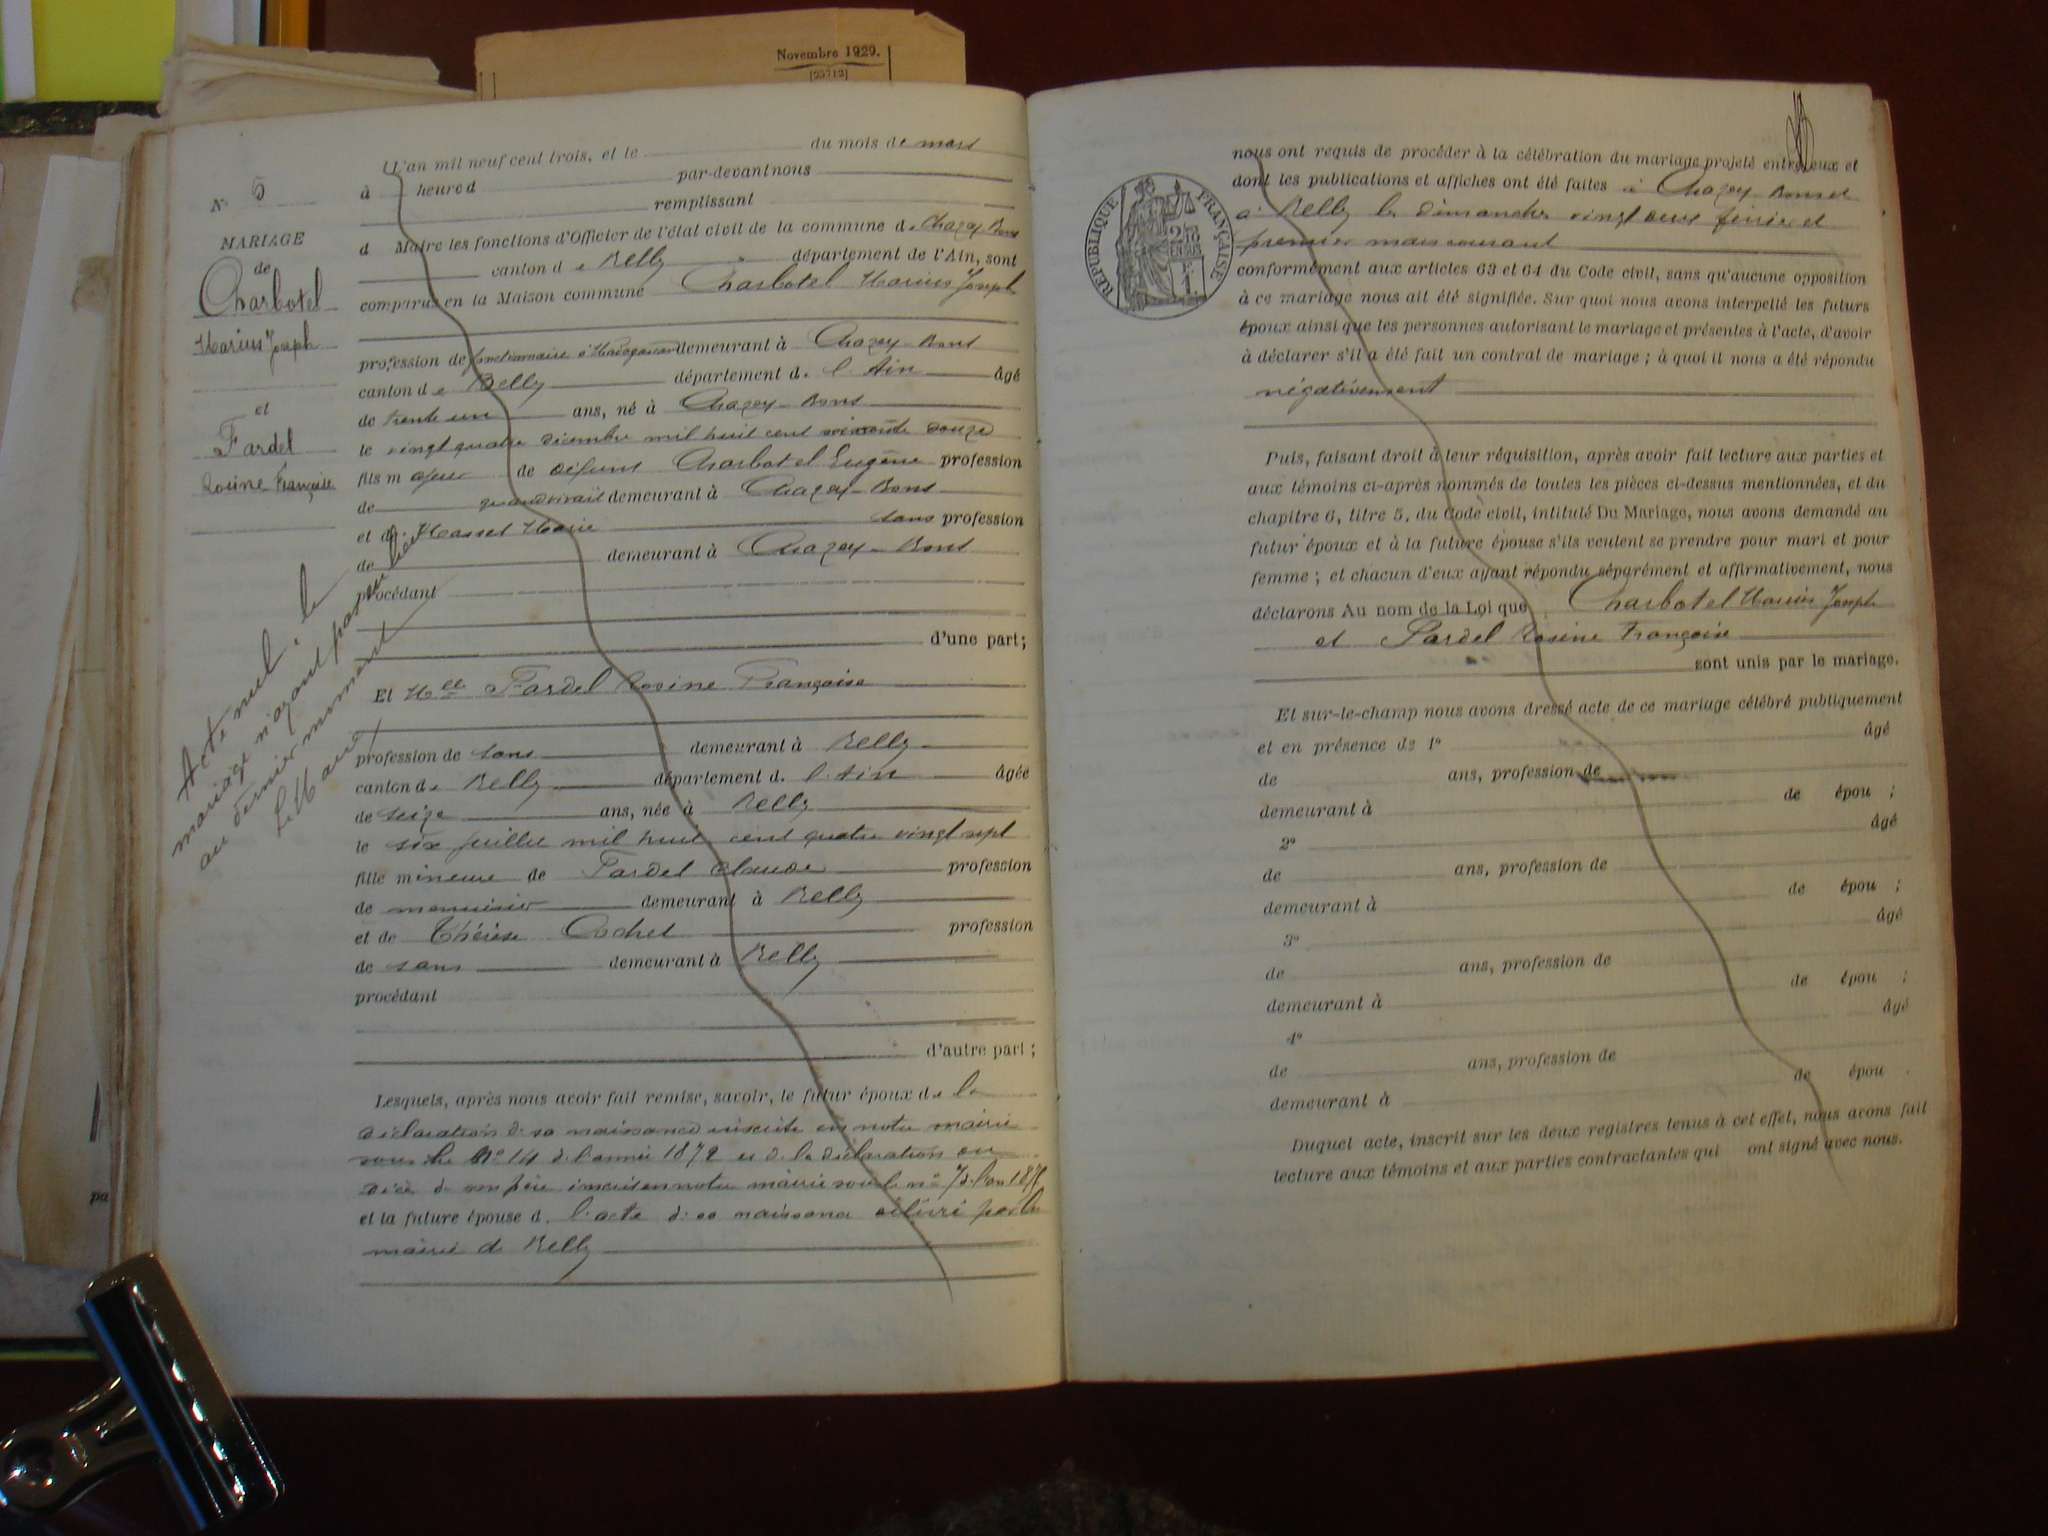 Novembre 1929.
[23712]
N° 5
MARIAGE
de
Charbotel
Marius Joseph
et
Fardel
Rosine Françoise
Acte nul, le
mariage n'ayant pas eu lieu
au dernier moment
Le Maire
L'an mil neuf cent trois, et le du mois de mars
à heure d par-devant nous
remplissant
d Maire les fonctions d'Officier de l'état civil de la commune de Chazey-Bons
canton de Belley département de l'Ain, sont
comparus en la Maison commune Charbotel Marius Joseph
profession de fonctionnaire à Madagascar demeurant à Chazey-Bons
canton de Belley département d. l'Ain âgé
de trente un ans, né à Chazey-Bons
le vingt quatre décembre mil huit cent soixante douze
fils majeur de défunt Charbotel Eugène profession
de quand vivait demeurant à Chazey-Bons
et de Masset Marie sans profession
de demeurant à Chazey-Bons
procédant
d'une part;
Et Melle Fardel Rosine Françoise
profession de sans demeurant à Belley
canton de Belley département d. l'Ain âgée
de seize ans, née à Belley
le six juillet mil huit cent quatre vingt sept
fille mineure de Fardel Claude profession
de menuisier demeurant à Belley
et de Thérèse Cochet profession
de sans demeurant à Belley
procédant
d'autre part;
Lesquels, après nous avoir fait remise, savoir, le futur époux de la
déclaration de sa naissance inscrite en notre mairie
sous le N° 14 de l'année 1872 et de la déclaration du
décès de son père inscrit en notre mairie sous le n° 7 de l'an
et la future épouse d. l'acte de sa naissance délivré par la
mairie de Belley
nous ont requis de procéder à la célébration du mariage projeté entre eux et
dont les publications et affiches ont été faites à Chazey-Bons et
à Belley les dimanches vingt deux février et
premier mars courant
conformément aux articles 63 et 64 du Code civil, sans qu'aucune opposition
à ce mariage nous ait été signifiée. Sur quoi nous avons interpellé les futurs
époux ainsi que les personnes autorisant le mariage et présentes à l'acte, d'avoir
à déclarer s'il a été fait un contrat de mariage; à quoi il nous a été répondu
négativement
RÉPUBLIQUE FRANÇAISE
Puis, faisant droit à leur réquisition, après avoir fait lecture aux parties et
aux témoins ci-après nommés de toutes les pièces ci-dessus mentionnées, et du
chapitre 6, titre 5, du Code civil, intitulé Du Mariage, nous avons demandé au
futur époux et à la future épouse s'ils veulent se prendre pour mari et pour
femme; et chacun d'eux ayant répondu séparément et affirmativement, nous
déclarons Au nom de la Loi que Charbotel Marius Joseph
et Fardel Rosine Françoise
sont unis par le mariage.
Et sur-le-champ nous avons dressé acte de ce mariage célébré publiquement
et en présence de 1° âgé
de ans, profession de
demeurant à de épou ;
2° âgé
de ans, profession de
demeurant à de épou ;
3° âgé
de ans, profession de
demeurant à de épou ;
4° âgé
de ans, profession de
demeurant à de épou .
Duquel acte, inscrit sur les deux registres tenus à cet effet, nous avons fait
lecture aux témoins et aux parties contractantes qui ont signé avec nous.